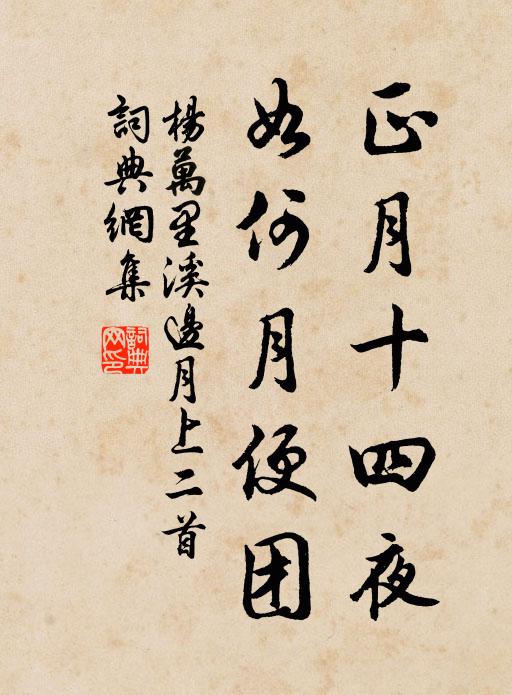 正月十四夜
如何月便团
楊萬里溪邊月上二首
詞典網集
詞典
网印